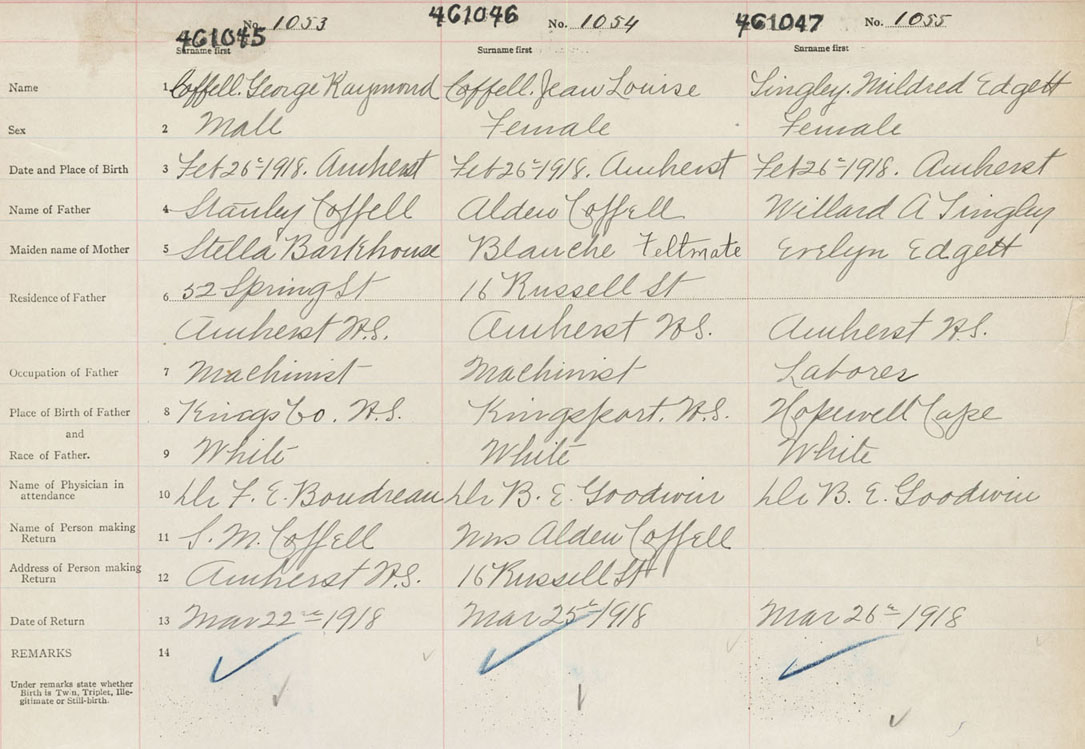 461045 No. 1053 461046 No. 1054 461047 No. 1055
Surname first Surname first Surname first
Name 1 Coffell. George Raymond Coffell. Jean Louise Tingley. Mildred Edgett
Sex 2 Male Female Female
Date and Place of Birth 3 Feb 26th 1918. Amherst Feb 26th 1918. Amherst Feb 26th 1918. Amherst
Name of Father 4 Stanley Coffell Alden Coffell Willard A Tingley
Maiden name of Mother 5 Stella Barkhouse Blanche Feltmate Evelyn Edgett
Residence of Father 6 52 Spring St 16 Russell St
Amherst N.S. Amherst N.S. Amherst N.S.
Occupation of Father 7 Machinist Machinist Laborer
Place of Birth of Father 8 Kings Co. N.S. Kingsport. N.S. Hopewell Cape
and
Race of Father. 9 White White White
Name of Physician in
attendance 10 Dr F. E. Boudreau Dr B. E. Goodwin Dr B. E. Goodwin
Name of Person making
Return 11 S. M. Coffell Mrs Alden Coffell
Address of Person making
Return 12 Amherst N.S. 16 Russell St
Date of Return 13 Mar 22nd 1918 Mar 25th 1918 Mar 26th 1918
REMARKS 14
Under remarks state whether
Birth is Twin, Triplet, Ille-
gitimate or Still-birth.